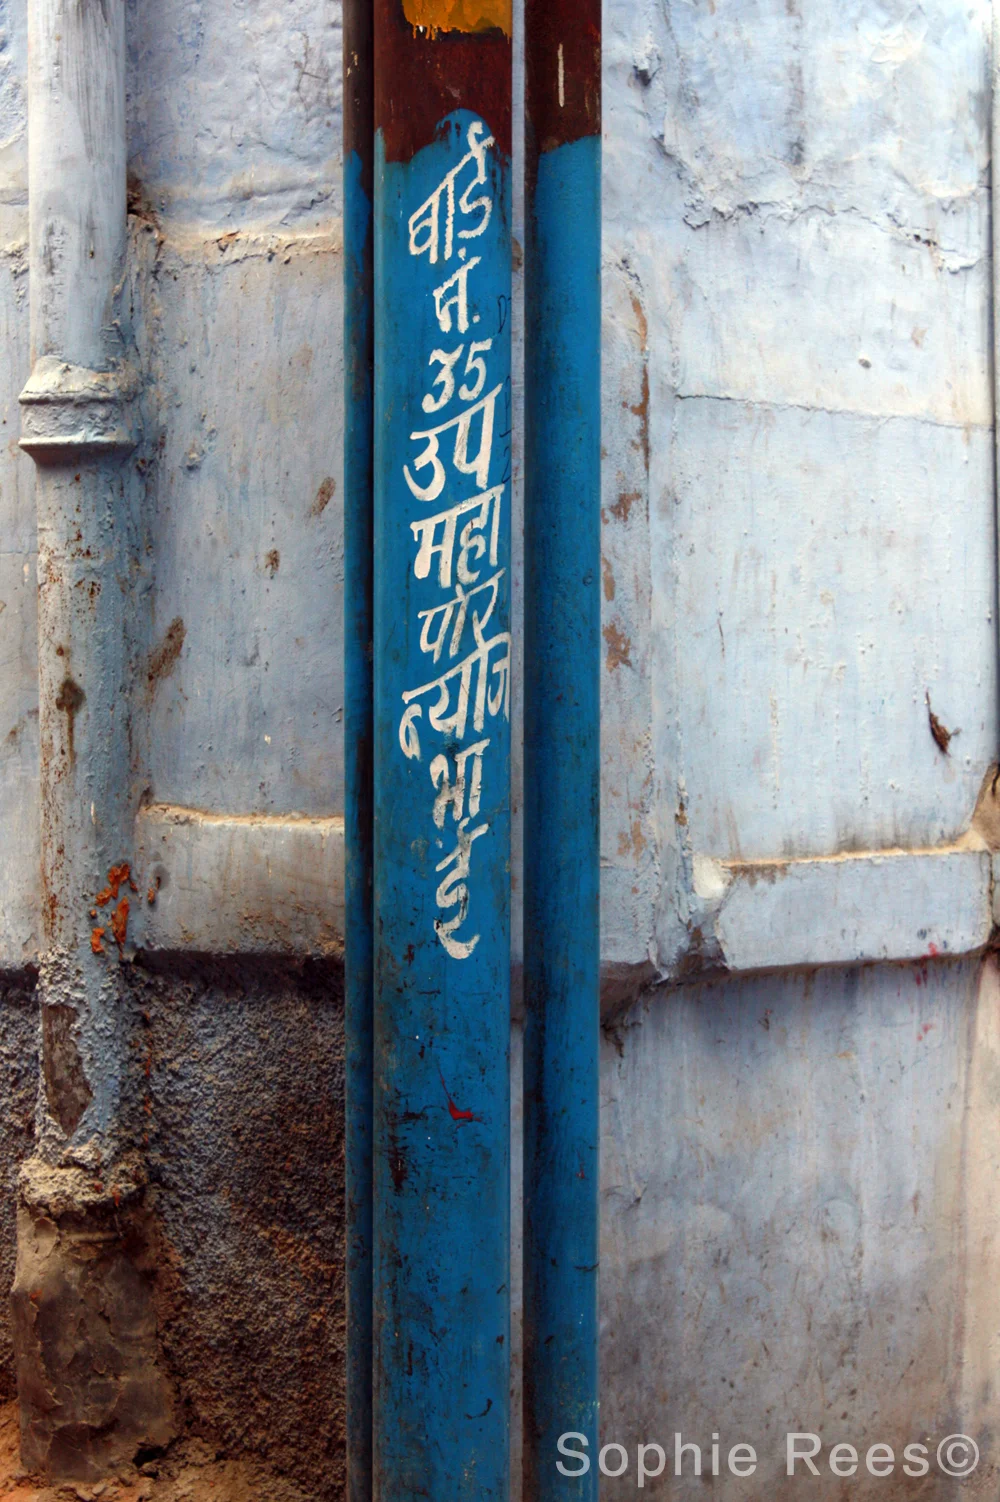 वार्ड
न.
35
उप
महा
पोर
न्याज
भा
ई
Sophie Rees©